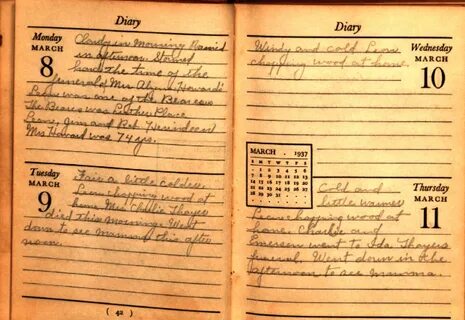 Diary
Monday
MARCH
8
Cloudy in Morning Rained
in afternoon. Stormed
hard the time of the
funeral of Mrs Howard
Leon was one of the Bearers
The Bears was Luther Place
Leon, Jim and
Mrs Howard was 74 yrs.
Tuesday
MARCH
9
Fair a little colder.
Leon chopping wood at
home. Mrs Charlie Thayer
died this morning. Went
down to see Mamma this after
noon.
( 42 )
Diary
Wednesday
MARCH
10
Windy and cold Leon
chopping wood at home.
MARCH 1937
S M T W T F S
1 2 3 4 5 6
7 8 9 10 11 12 13
14 15 16 17 18 19 20
21 22 23 24 25 26 27
28 29 30 31
Thursday
MARCH
11
Cold and
little warmer
Leon chopping wood at
home. Charlie and
Emerson went to Ida Thayers
funeral. Went down in the
afternoon to see Mamma.